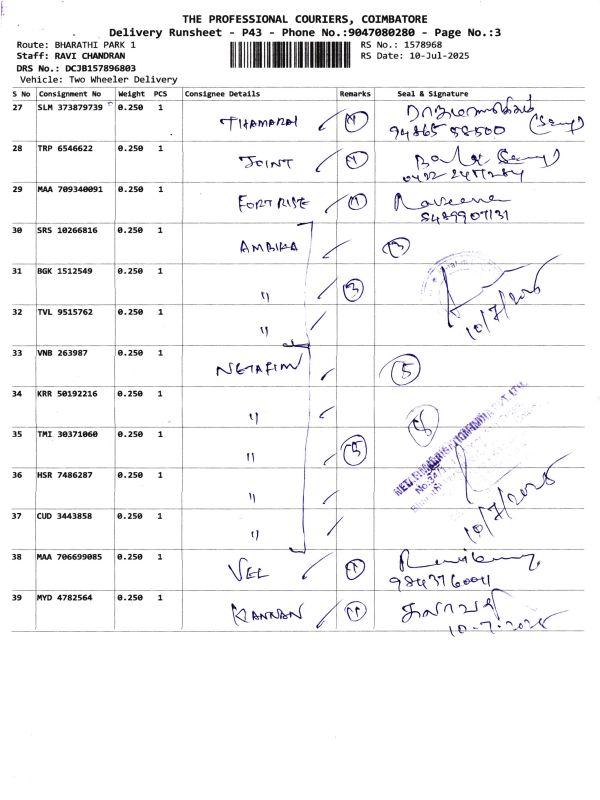 THE PROFESSIONAL COURIERS, COIMBATORE
Delivery Runsheet - P43 - Phone No.:9047080280 - Page No.:3
Route: BHARATHI PARK 1 RS No.: 1578968
Staff: RAVI CHANDRAN RS Date: 10-Jul-2025
DRS No.: DCJB157896803
Vehicle: Two Wheeler Delivery
S No Consignment No Weight PCS Consignee Details Remarks Seal & Signature
27 SLM 373879739 0.250 1 THAMARAI
94865 58500
28 TRP 6546622 0.250 1 JOINT
29 MAA 709340091 0.250 1 FORTRISE Naveena
8489907131
30 SRS 10266816 0.250 1 AMBIKA 3
31 BGK 1512549 0.250 1 " 3
10/7/2025
32 TVL 9515762 0.250 1 "
33 VNB 263987 0.250 1 NETAFIM 5
34 KRR 50192216 0.250 1 "
35 TMI 30371060 0.250 1 " 5
36 HSR 7486287 0.250 1 "
10/7/2025
37 CUD 3443858 0.250 1 "
38 MAA 706699085 0.250 1 VEL
9843760041
39 MYD 4782564 0.250 1 KANNAN
10-7-2025